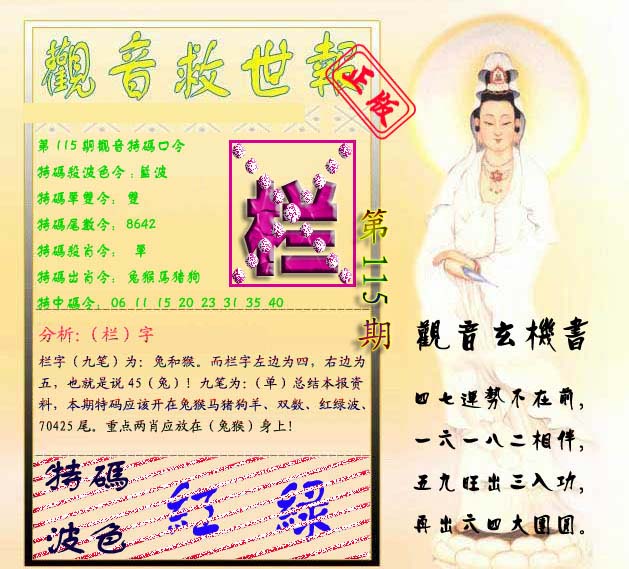 觀音救世報
正版
第115期觀音特碼口令
特碼殺波色令：藍波
特碼單雙令： 雙
特碼尾數令： 8642
特碼殺肖令： 單
特碼出肖令： 兔猴馬猪狗
特中碼令： 06 11 15 20 23 31 35 40
栏
第115期
分析:（栏）字
栏字（九笔）为：兔和猴。而栏字左边为四，右边为
五，也就是说 45（兔）！九笔为：（单）总结本报资
料，本期特码应该开在兔猴马猪狗羊、双数、红绿波、
70425 尾。重点两肖应放在（兔猴）身上！
特碼
波色
紅 緑
觀音玄機書
四七運勢不在前，
一六一八二相伴，
五九旺出三入功，
再出六四大團圓。